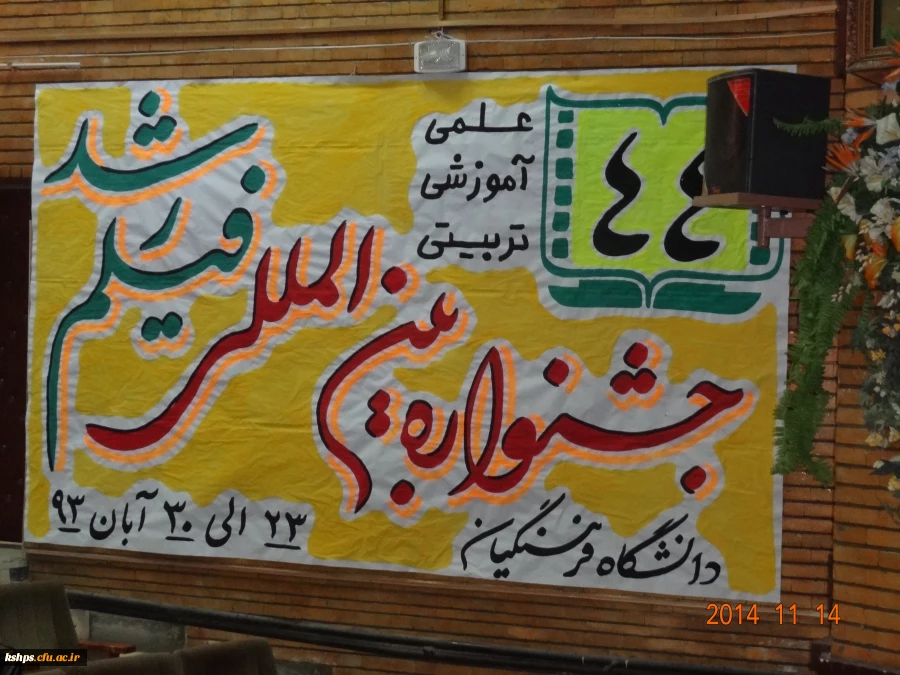 ٤٤
علمی
آموزشی
تربیتی
جشنواره بین المللی
فیلم رشد
دانشگاه فرهنگیان
۲۳ الی ۳۰ آبان ۹۳
2014 11 14
kshps.cfu.ac.ir